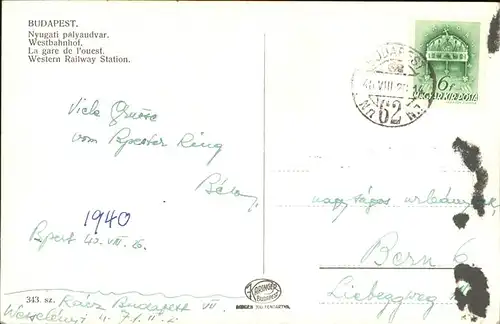 BUDAPEST.
Nyugati pályaudvar.
Westbahnhof.
La gare de l'ouest.
Western Railway Station.
Viele Grüsse
vom Pester Ring
Béla
1940
Bpest 40. VIII. 26.
343. sz.
Rácz Budapest VII
Wesselényi u.
BARINGER
Budapest
BUDAPEST
62
6f
MAGYAR KIR. POSTA
nagyságos
Bern 6
Liebeggweg